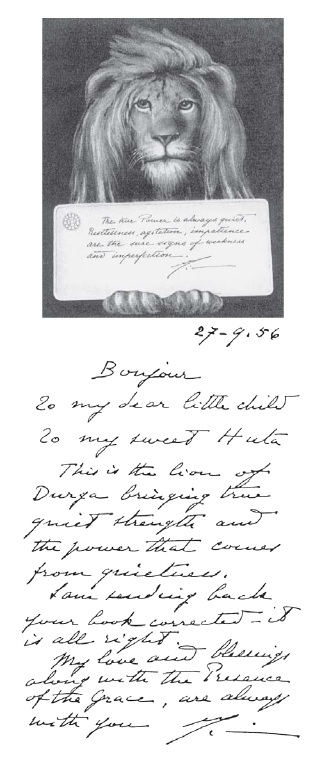 The true Power is always quiet.
Restlessness, agitation, impatience
are the sure signs of weakness
and imperfection.
27-9.56
Bonjour
To my dear little child
To my sweet Huta
This is the lion of
Durga bringing true
quiet strength and
the power that comes
from quietness.
I am sending back
your book corrected – it
is all right.
My love and blessings
along with the Presence
of the Grace, are always
with you